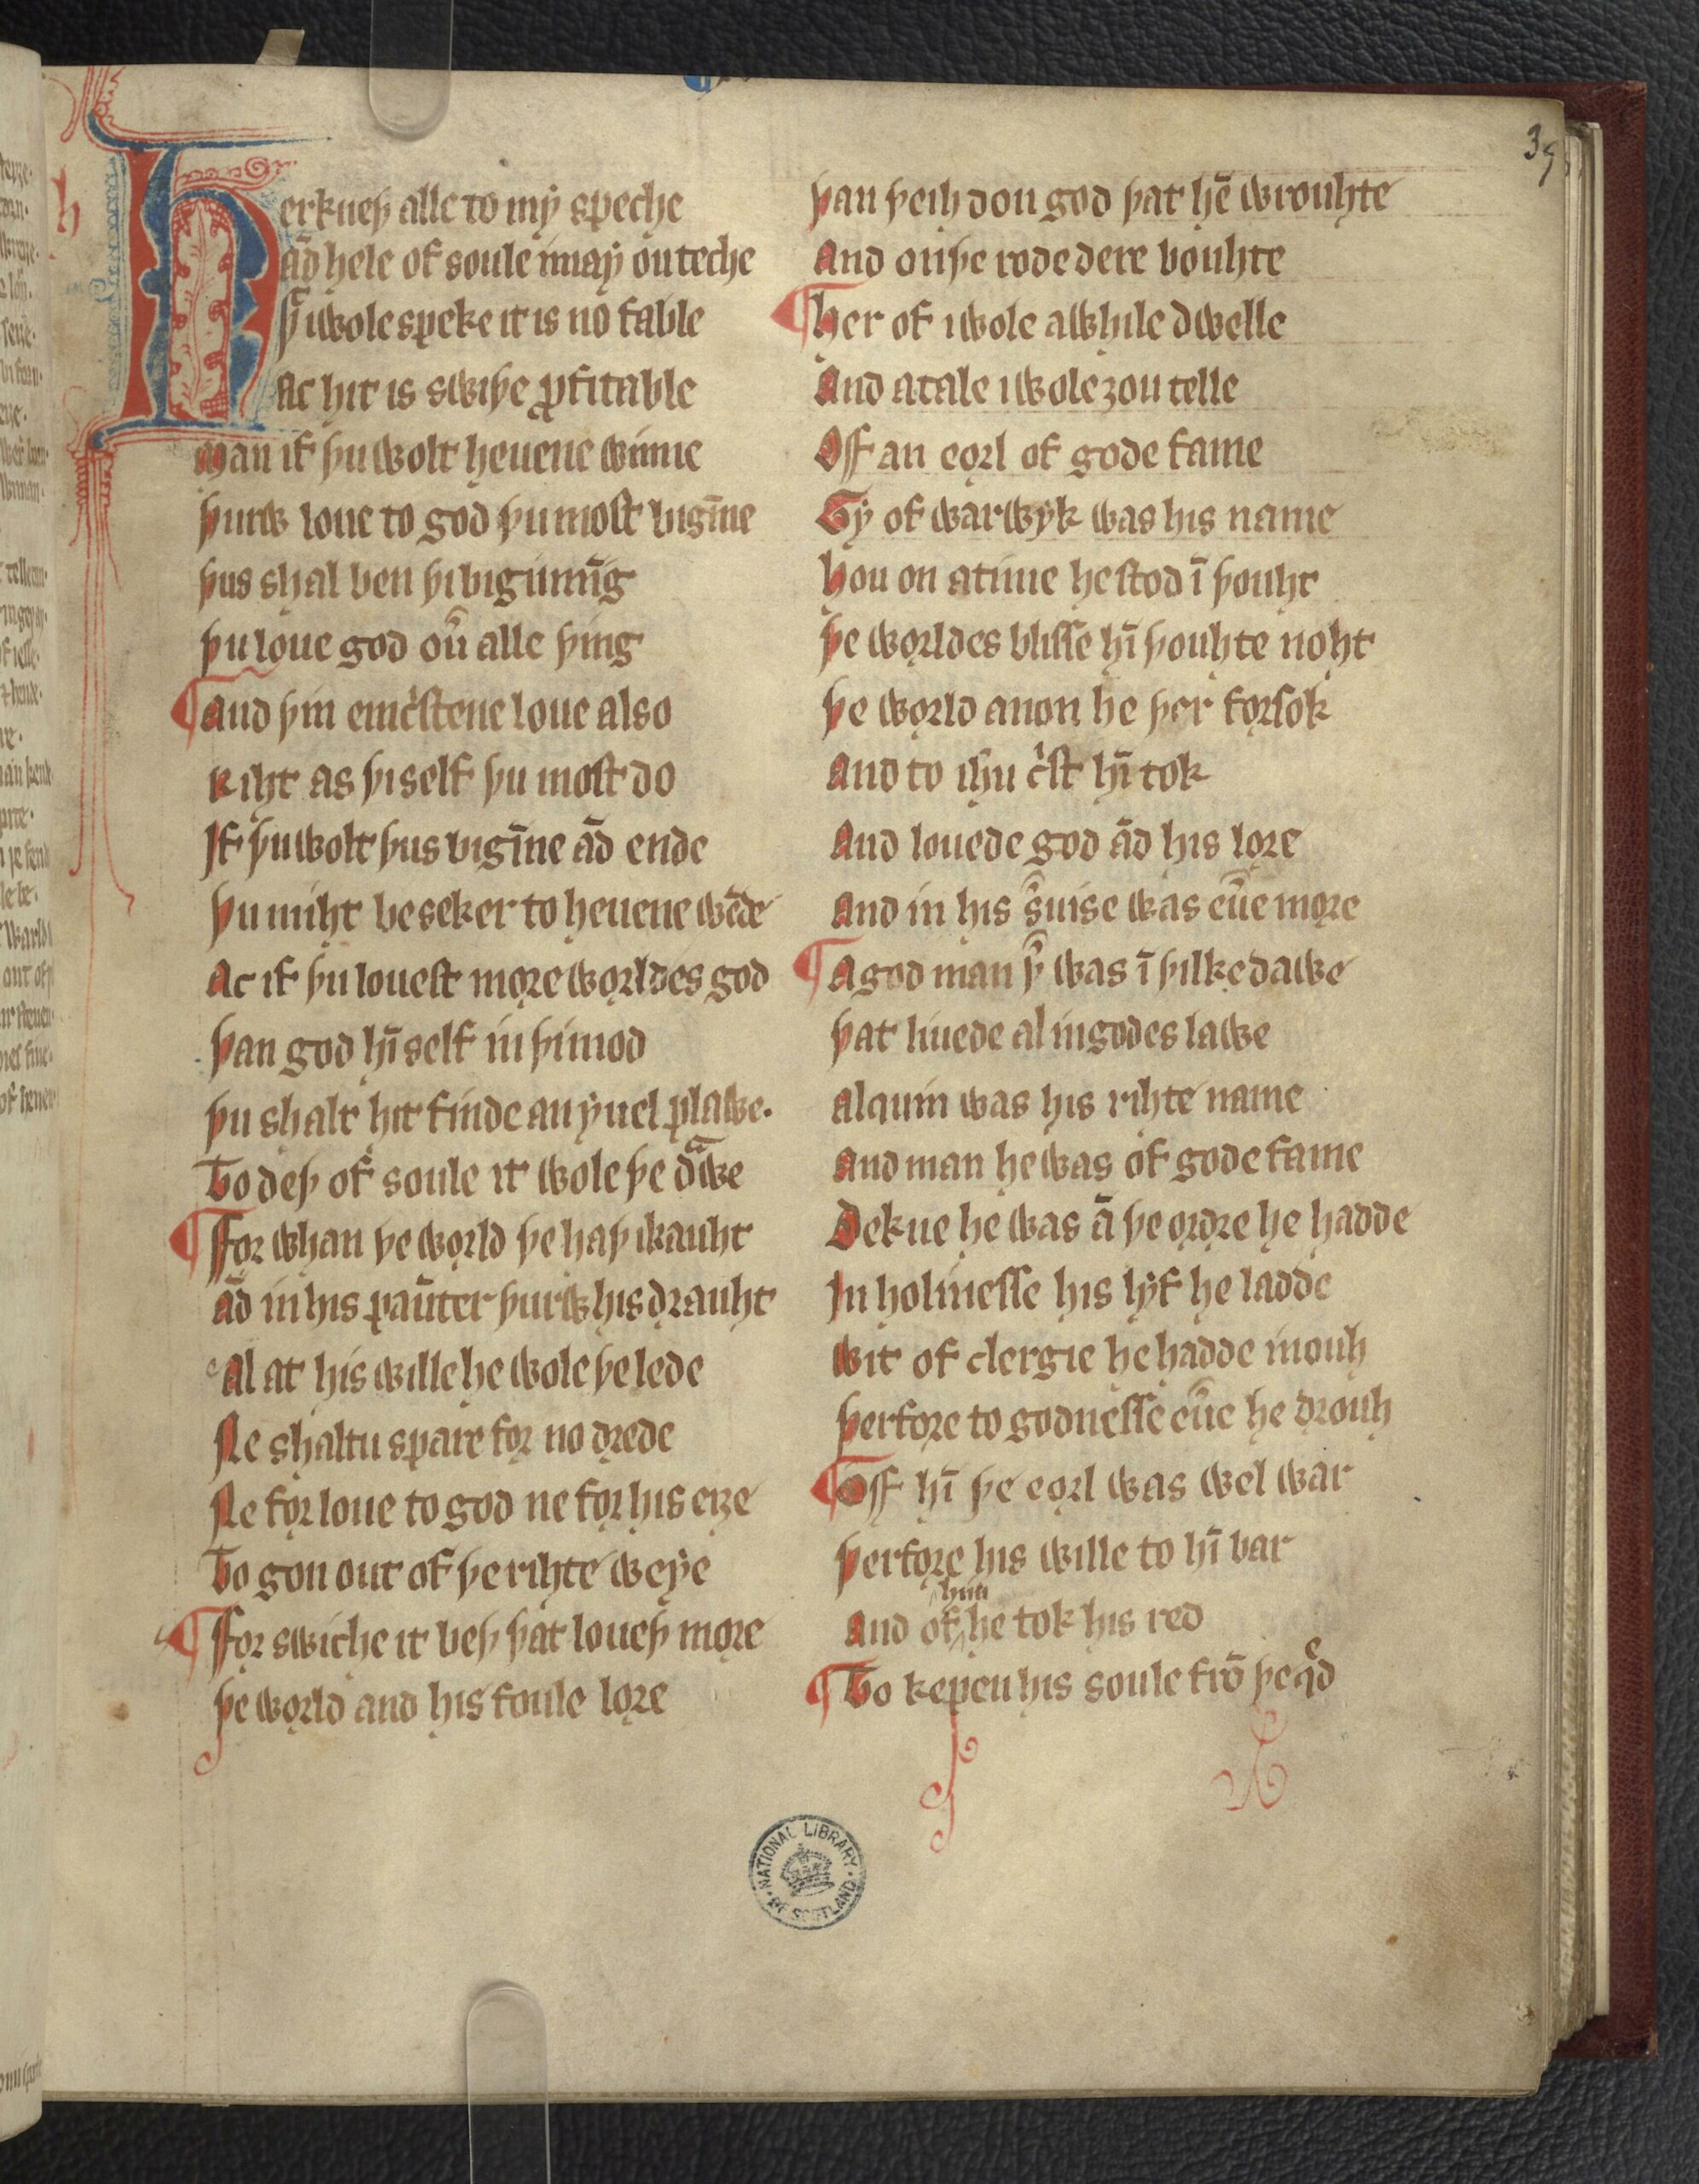 39
Herkneþ alle to mẏ speche
ād hele of soule i maẏ ou teche
þͭ i wole speke it is no fable
Ac hit is swiþe ꝓfitable
Man if þu wolt heuene winne
þurw loue to god þu most bigīne
þus shal ben þi biginnīg
þu loue god ou͛ alle þing
¶ And þin emc͛stene loue also
Riht as þi self þu most do
If þu wolt þus bigīne ād ende
þu miht be seker to heuene wēde
Ac if þu louest more worldes god
þan god hī self in þi mod
þu shalt hit finde an ẏuel plawe.
To deþ of soule it wole þe dᵃwe
¶ For whan þe world þe haþ ikauht
ād in his pāuter þurw his drauht
Al at his wille he wole þe lede
Ne shaltu spare for no drede
Ne for loue to god ne for his eiȝe
To gon out of þe rihte weẏe
¶ For swiche it beþ þat loueþ more
þe world and his foule lore
þan þeih don god þat hē wrouhte
And on þe rode dere bouhte
¶ Her of i wole a while dwelle
And a tale i wole ȝou telle
Off an eorl of gode fame
Gẏ of warwẏk was his name
Hou on a time he stod ī þouht
þe worldes blisse hī þouhte noht
þe world anon he þer forsok
And to ihu c͛st hī tok
And louede god ād his lore
And in his s͛uise was eu͛e more
¶ A god man þ͛ was ī þilke dawe
þat liuede al in godes lawe
Alquin was his rihte name
And man he was of gode fame
Dekne he was ā þe ordre he hadde
In holinesse his lẏf he ladde
Wit of clergie he hadde inouh
þerfore to godnesse eu͛e he drouh
¶ Off hī þe eorl was wel war
þerfore his wille to hī bar
And of him he tok his red
¶ To kepen his soule frō þe qᵉd
NATIONAL LIBRARY OF SCOTLAND